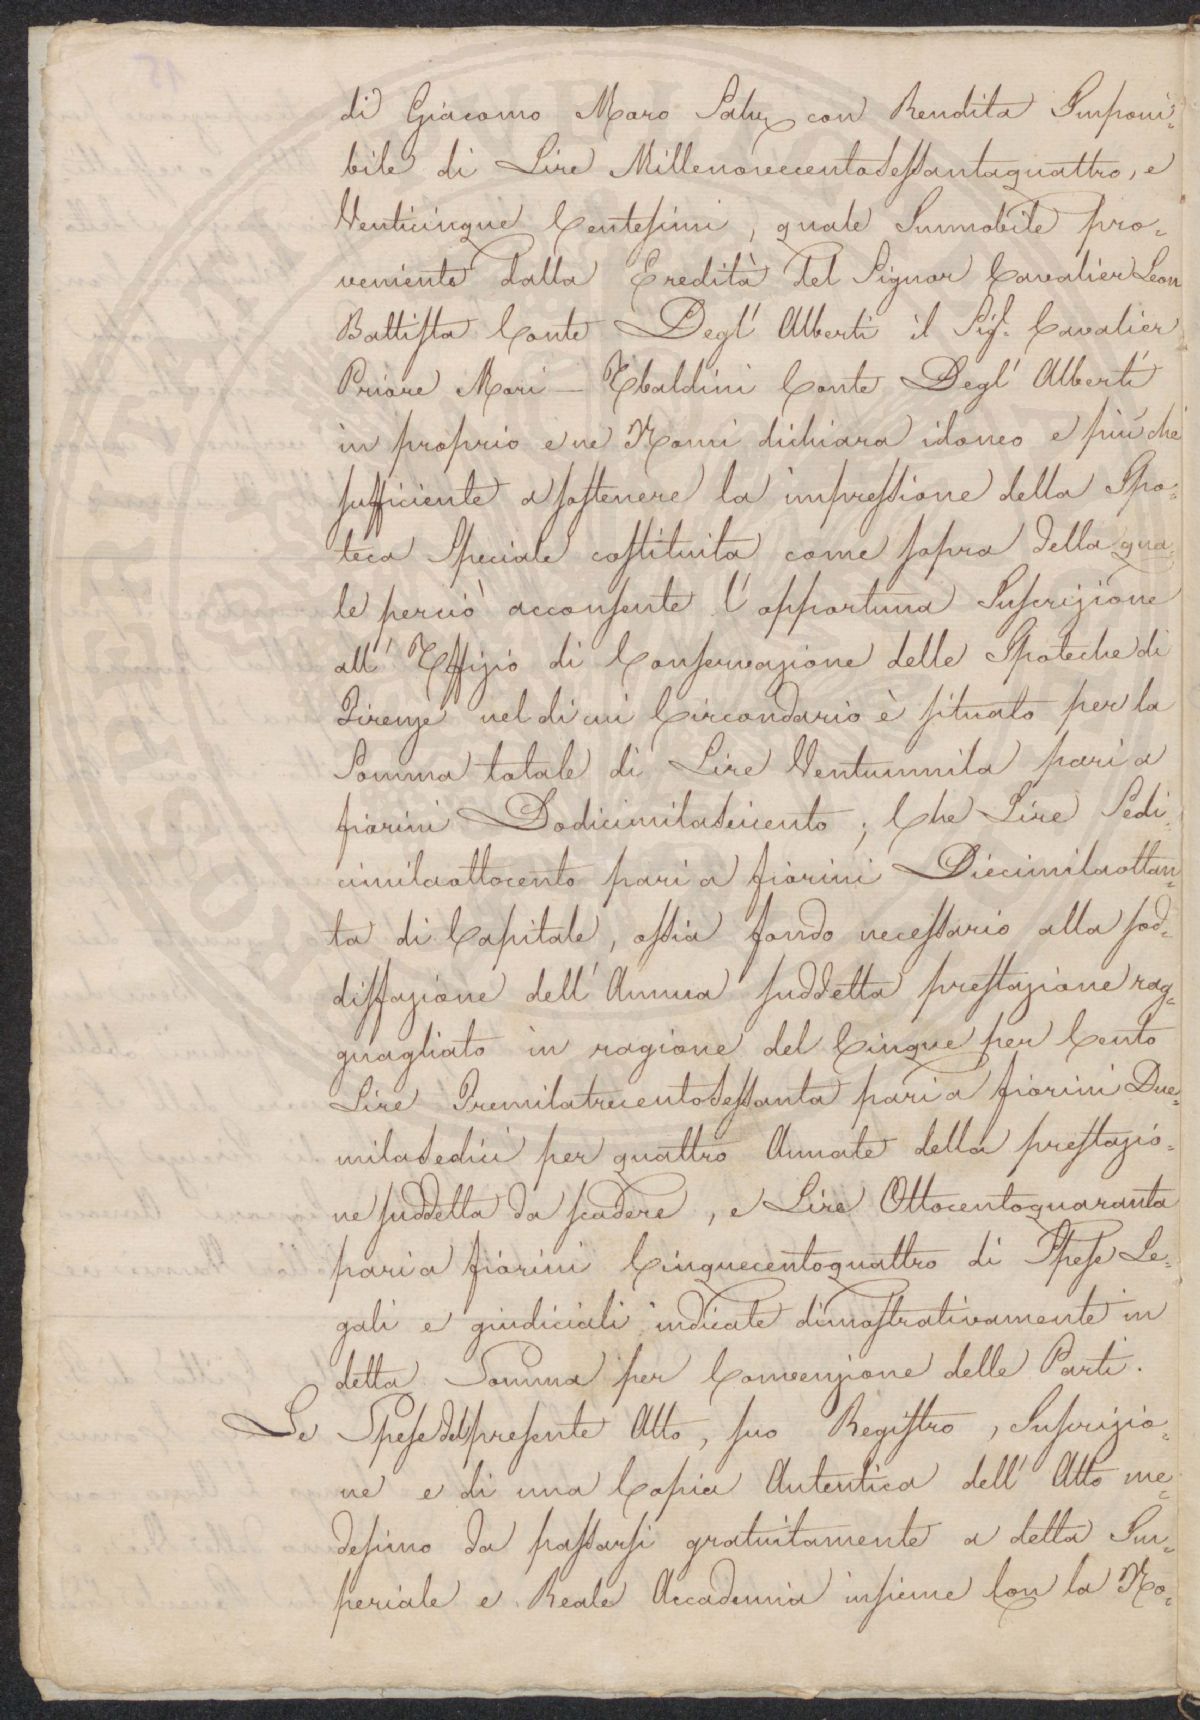 di Giacomo Moro Salvi con Rendita Imponi-
bile di Lire MillenovecentoSessantaquattro, e
Venticinque Centesimi, quale Immobile pro-
veniente dalla Eredità del Signor Cavalier Leon
Battista Conte Degl' Alberti il Sig.r Cavalier
Priore Mori - Ubaldini Conte Degl' Alberti
in proprio e ne Nomi dichiara idoneo e più che
sufficiente a sostenere la impressione della Ipo-
teca Speciale costituita come sopra della qua-
le perciò acconsente l'opportuna Inscrizione
all' Uffizio di Conservazione delle Ipoteche di
Firenze nel di cui Circondario è situato per la
Somma totale di Lire Ventunmila pari a
fiorini DodicimilaSeicento; Che Lire Sedi-
cimilaottocento pari a fiorini Diecimilaottan-
ta di Capitale, ossia fondo necessario alla sod-
disfazione dell'Annua suddetta prestazione rag-
guagliato in ragione del Cinque per Cento
Lire TremilatrecentoSessanta pari a fiorini Due-
milaSedici per quattro Annate della prestazio-
ne suddetta da scadere, e Lire Ottocentoquaranta
pari a fiorini Cinquecentoquattro di Spese Le-
gali e giudiciali indicate dimostrativamente in
detta Somma per Convenzione delle Parti.
Le Spese del presente Atto, suo Registro, Inscrizio-
ne e di una Copia Autentica dell' Atto me-
desimo da passarsi gratuitamente a detta Im-
periale e Reale Accademia insieme Con la No-